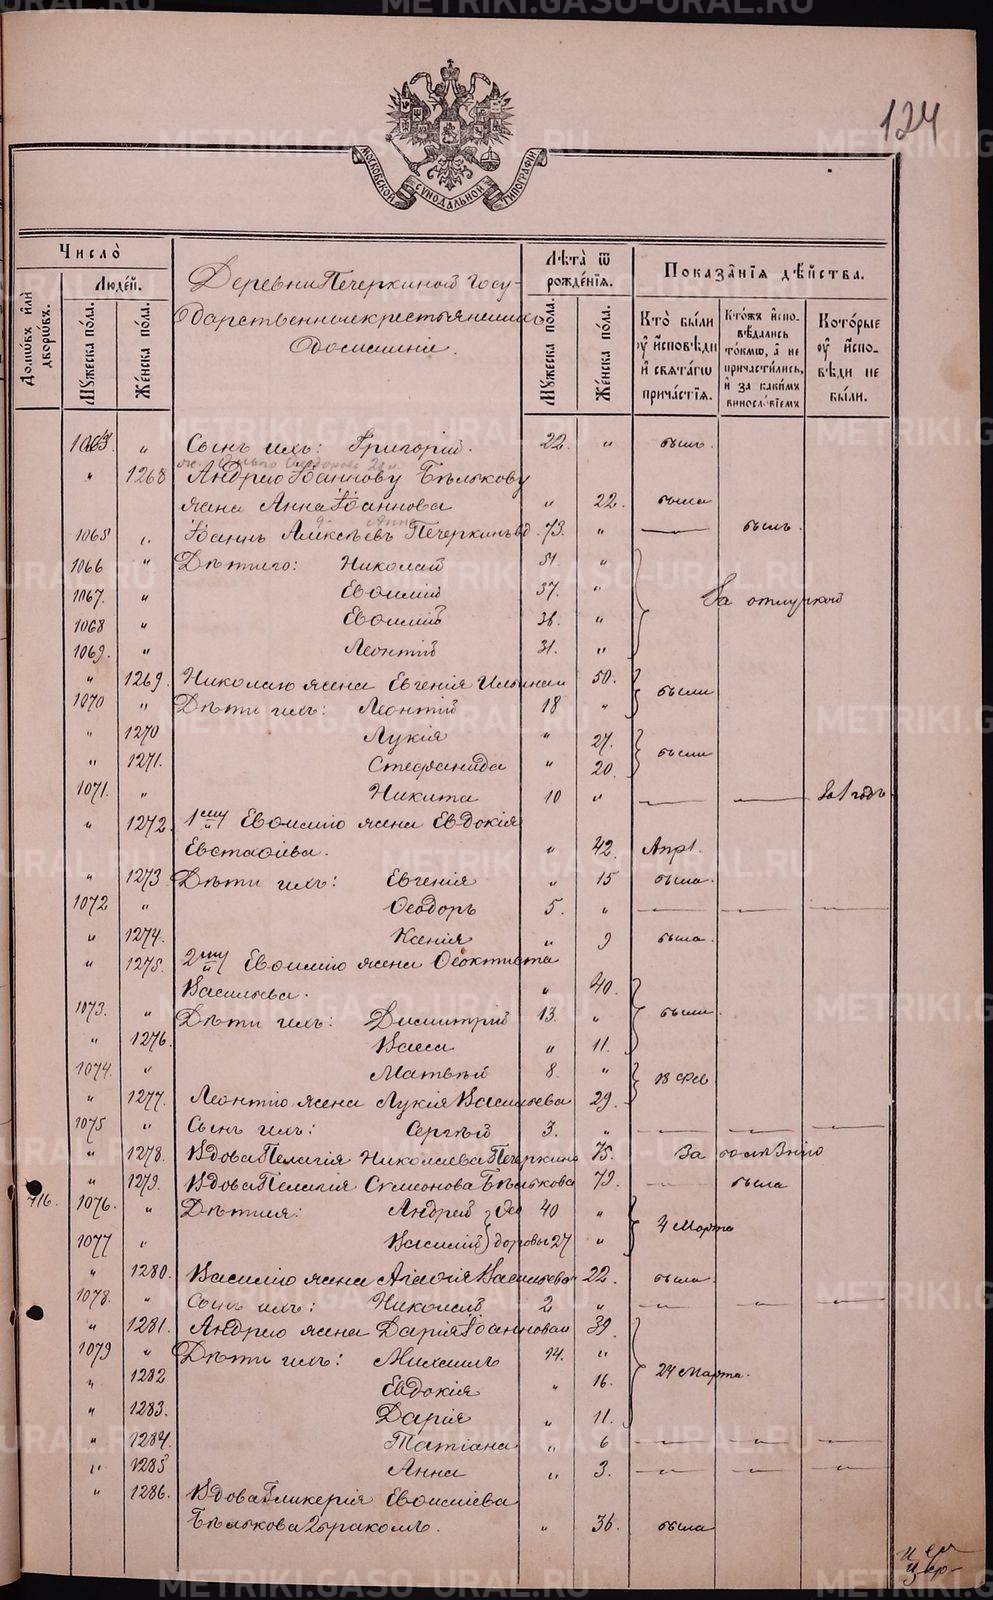 124
МОСКОВСКОЙ СѴНОДАЛЬНОЙ ТИПОГРАФІИ
Число̀
Домѡвъ илѝ дворѡвъ.
Людей.
Мужеска пола.
Женска пола.
Деревни Печеркиной Госу-
дарственные крестьяне и ихъ
домашніе.
Лѣта̀ ѿ рожденїѧ.
Мужеска пола.
Женска пола.
Показанїѧ дѣйства.
Кто̀ были ᲂу̓ исповѣди и свѧтагѡ причастїѧ.
Ктожъ исповѣдались токмѡ, а не причастились, и за какимъ винословїемъ
Которые ᲂу̓ исповѣди не были.
" Сынъ ихъ: Григорій. 22. " былъ.
" 1268 Андрею Іоаннову Бѣлькову
жена Анна Іоаннова " 22. была
1065 " Іоаннъ Алексѣевъ Печеркинъ вд. 73. " — былъ.
1066 " Дѣти его: Николай 51. "
1067. " Евѳимій 37. " За отлучкой
1068 " Евѳимій 36. "
1069. " Леонтій 31. "
" 1269. Николаю жена Евгенія Ильина 50. были
1070 " Дѣти ихъ: Леонтій 18 "
" 1270 Лукія " 27. были
" 1271. Стефанида " 20.
1071. " Никита 10 " — — За 1 годъ.
" 1272. 1му Евѳимію жена Евдокія
Евстаѳіева. " 42. Апр.
" 1273 Дѣти ихъ: Евгенія " 15 была.
1072 " Ѳеодоръ 5. " — — —
" 1274. Ксенія " 9 была.
" 1275. 2му Евѳимію жена Ѳеоктиста
Васильева. " 40.
1073. " Дѣти ихъ: Димитрій 13. " были.
" 1276. Васса " 11.
1074. " Матвѣй 8. " 18 Фев
" 1277. Леонтію жена Лукія Васильева 29.
1075 " Сынъ ихъ: Сергѣй 3. " — — —
" 1278. Вдова Пелагія Николаева Печеркина 75. За болѣзнію
" 1279. Вдова Пелагія Симеонова Бѣлькова 79. — была
716. 1076. " Дѣти ея: Андрей } Ѳео 40 "
1077 " Василій } доровы 27 " 4 Марта
" 1280. Василію жена Агаѳія Васильева 22. была.
1078. " Сынъ ихъ: Николай 2 " — — —
" 1281. Андрею жена Дарія Іоаннова 39.
1079 " Дѣти ихъ: Михаилъ 14. "
" 1282 Евдокія " 16. 24 Марта.
" 1283. Дарія " 11.
" 1284. Татіана " 6 — — —
" 1285 Анна " 3. — — —
" 1286. Вдова Гликерія Евѳиміева
Бѣлькова 2 бракомъ. " 36. была
METRIKI.GASO-URAL.RU